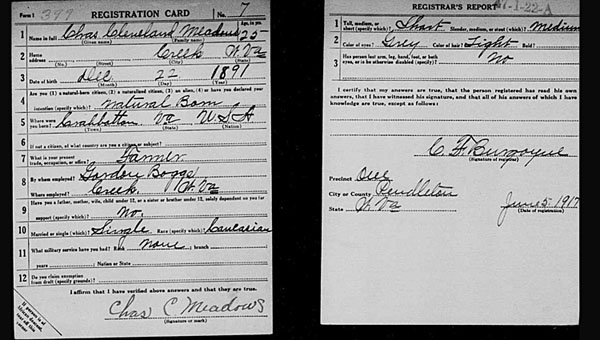 Form 1 399 REGISTRATION CARD No. 7
1 Name in full Chas. Cleveland Meadows Age, in yrs. 25
(Given name) (Family name)
2 Home address Creek W. Va
(No.) (Street) (City) (State)
3 Date of birth Dec 22 1891
(Month) (Day) (Year)
4 Are you (1) a natural-born citizen, (2) a naturalized citizen, (3) an alien, (4) or have you declared your
intention (specify which)? Natural Born
5 Where were you born? Va U S A
(Town) (State) (Nation)
6 If not a citizen, of what country are you a citizen or subject?
7 What is your present trade, occupation, or office? Farmer
8 By whom employed? Gordon Boggs
Where employed? Creek, W. Va
9 Have you a father, mother, wife, child under 12, or a sister or brother under 12, solely dependent on you for
support (specify which)? No.
10 Married or single (which)? Single Race (specify which)? Caucasian
11 What military service have you had? Rank none; branch
years; Nation or State
12 Do you claim exemption from draft (specify grounds)?
I affirm that I have verified above answers and that they are true.
Chas C Meadows
(Signature or mark)
REGISTRAR'S REPORT 1-22-A
1 Tall, medium, or short (specify which)? Short Slender, medium, or stout (which)? Medium
2 Color of eyes? Grey Color of hair? Light Bald?
3 Has person lost arm, leg, hand, foot, or both eyes, or is he otherwise disabled (specify)? No
I certify that my answers are true, that the person registered has read his own
answers, that I have witnessed his signature, and that all of his answers of which I have
knowledge are true, except as follows:
(Signature of registrar)
Precinct
City or County Pendleton
State W. Va
June 5, 1917
(Date of registration)